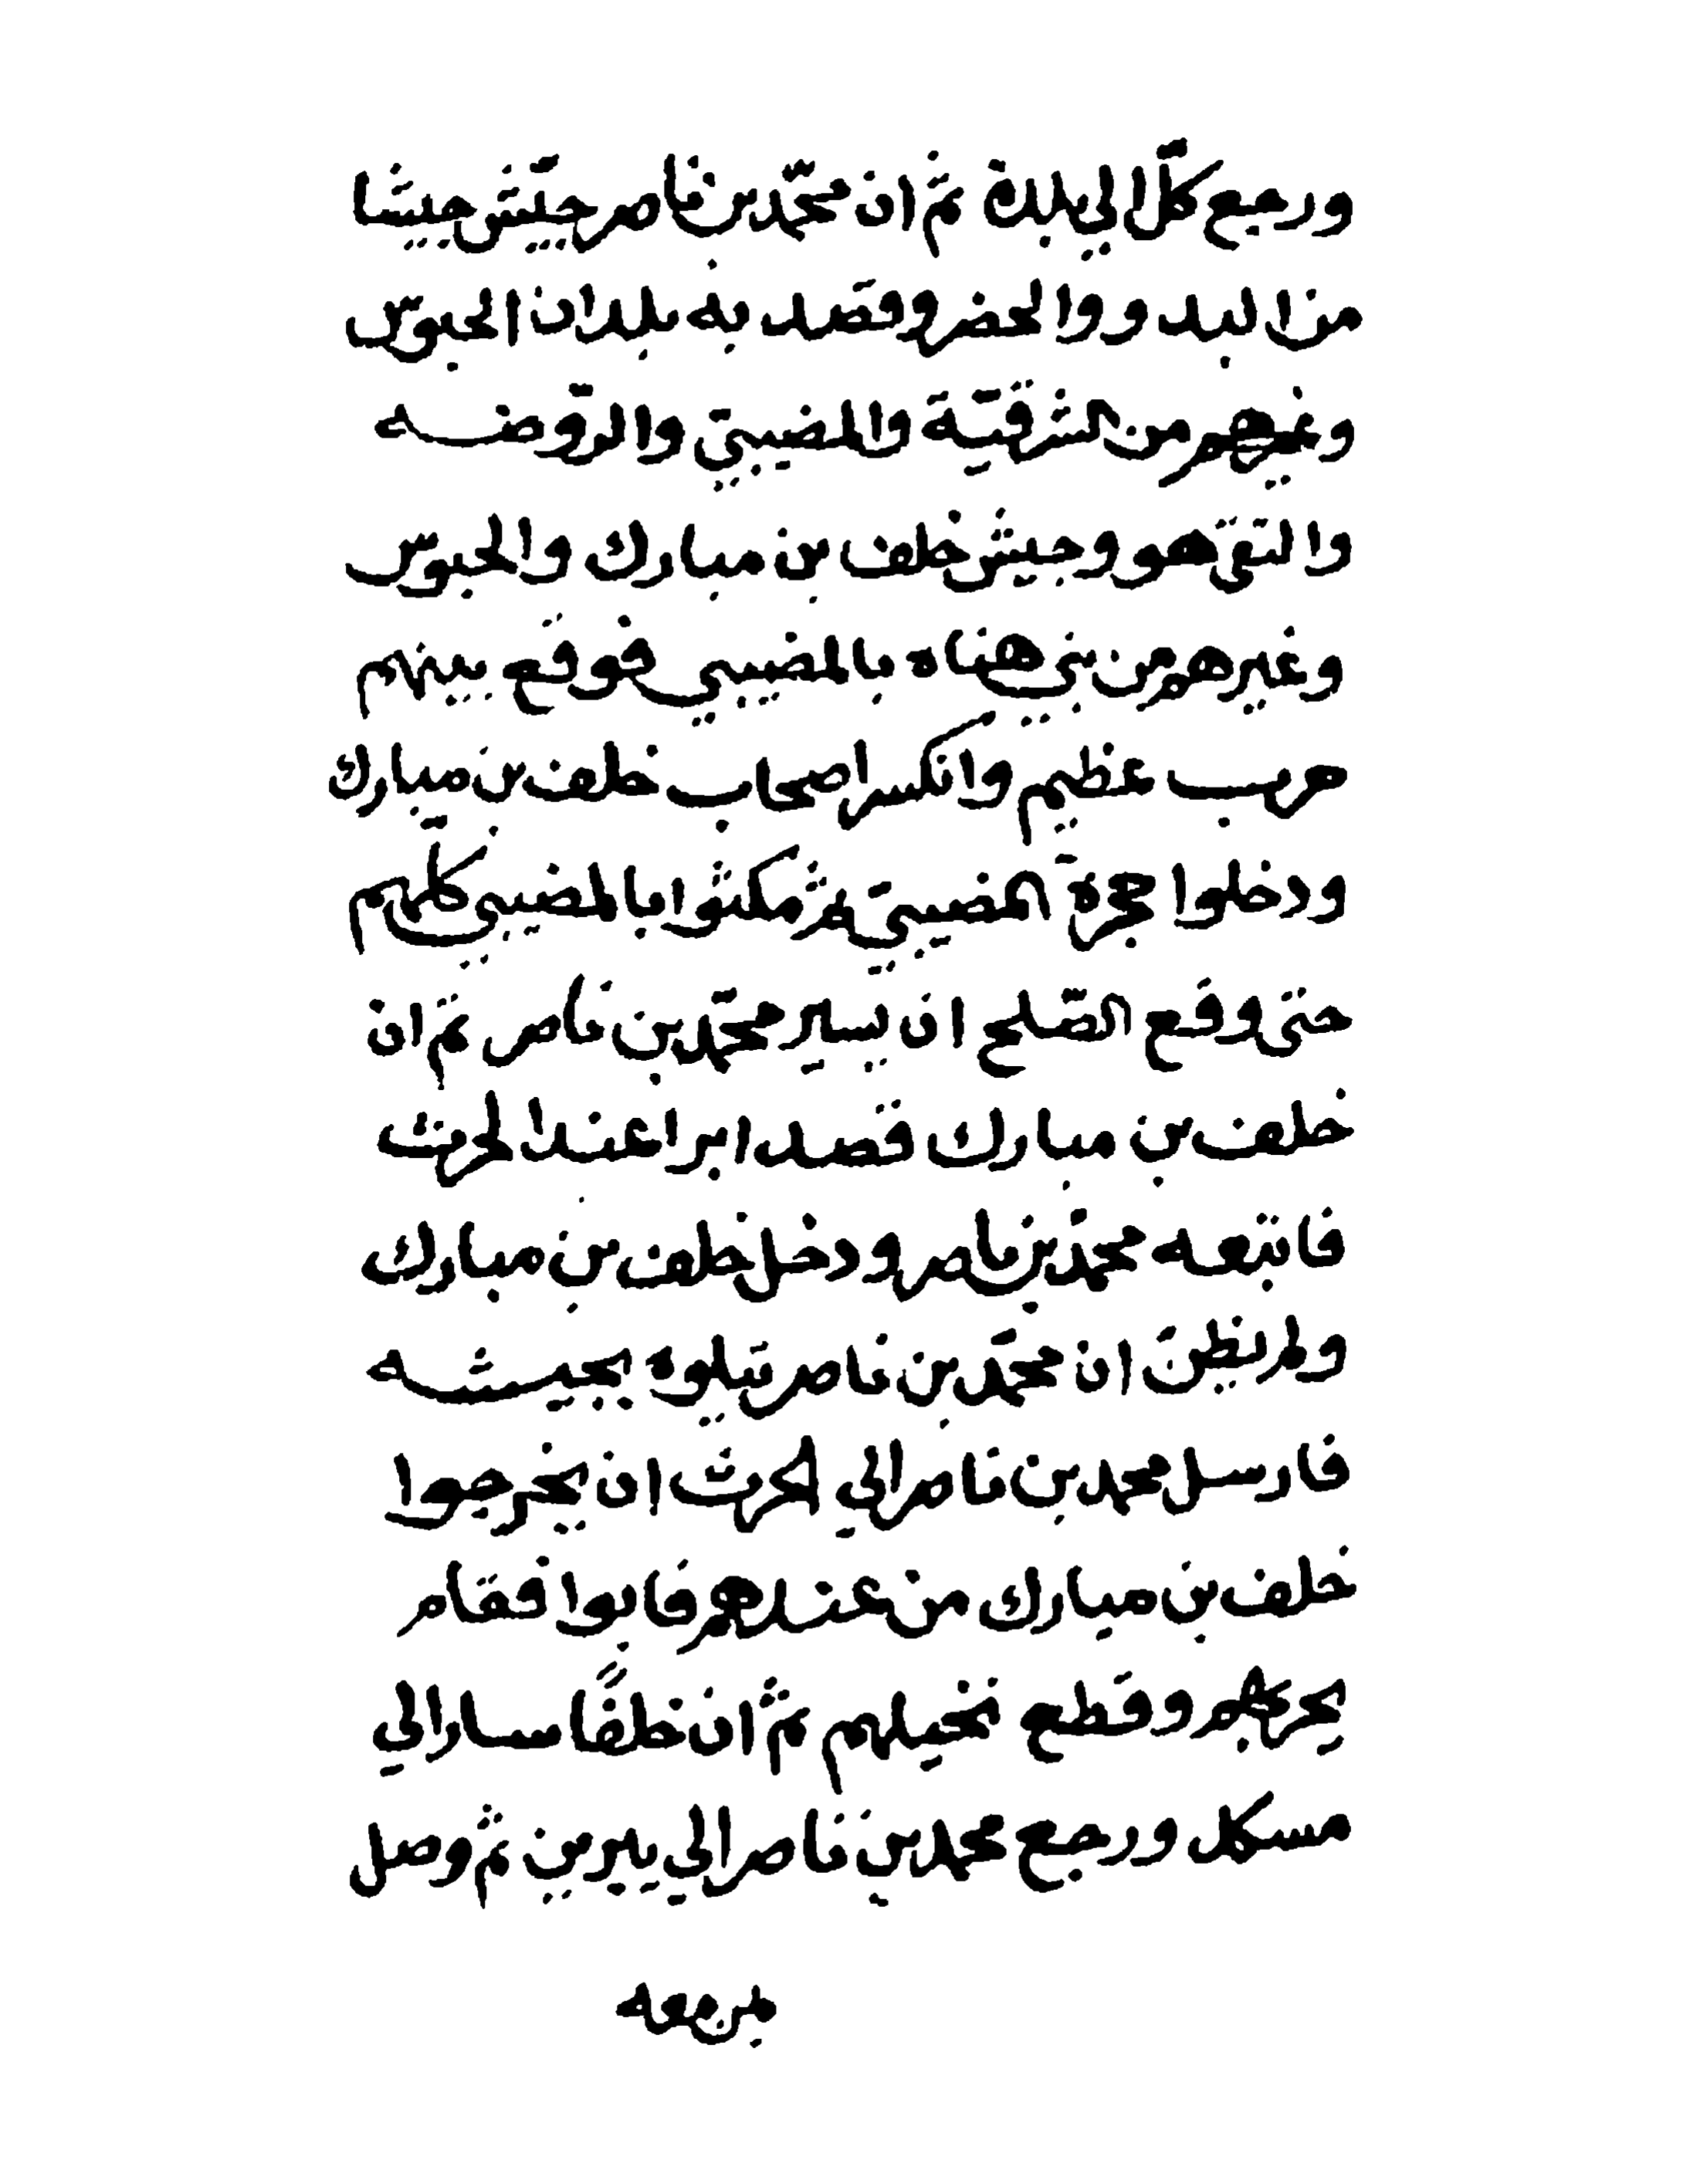 ورجع كلّ الي بلده ثمّ ان محمّد بن ناصر جيّش جيشا
من البدو والحضر وقصد به بلدان الحبوس
وغيرهم من الشرقيّة والمضيبيّ والرّوضه
والتقي هو وجيش خلف بن مبارك والحبوس
وغيرهم من بني هناه بالمضيبي فوقع بينهم
حرب عظيم وانكسر اصحاب خلف بن مبارك
ودخلوا حجرة المضيبيّ ثم مكثوا بالمضيبي كلّهم
حتى وقع الصّلح ان يسير محمّد بن ناصر ثمّ ان
خلف بن مبارك قصد ابرا عند الحرث
فاتبعه محمّد بن ناصر ودخل خلف بن مبارك
ولم يظنّ ان محمّد بن ناصر يتلوه بجيشه
فارسل محمد بن ناصر الي الحرث ان يخرجوا
خلف بن مبارك من عندهم فابوا فقام
بحربهم وقطع نخيلهم ثمّ ان خلفًا سار الي
مسكد ورجع محمد بن ناصر الي يبرين ثمّ وصل
بمن معه